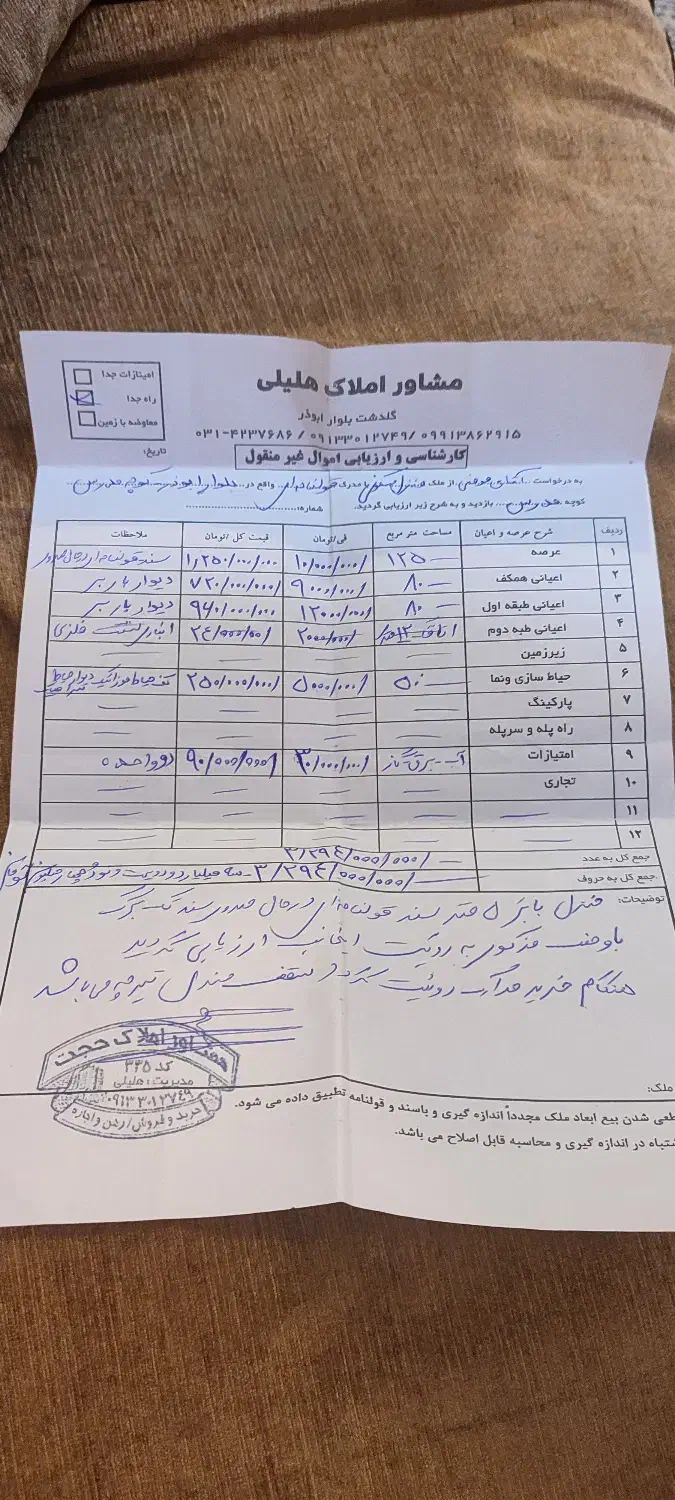 مشاور املاک هلیلی
گلدشت بلوار ابوذر
۰۹۹۱۳۸۶۲۹۱۵ / ۰۹۱۳۳۰۱۲۷۴۹ / ۰۳۱-۴۲۳۷۶۸۶
امتیازات جدا
راه جدا
معاوضه با زمین
تاریخ:
کارشناسی و ارزیابی اموال غیر منقول
به درخواست از ملک با مدرک قولنامه ای واقع در بلوار ابوذر کوچه
کوچه بازدید و به شرح زیر ارزیابی گردید. شماره:
ردیف شرح عرصه و اعیان مساحت متر مربع فی/تومان قیمت کل /تومان ملاحظات
۱ عرصه ۱۲۵ ۱۰/۰۰۰/۰۰۰ ۱/۲۵۰/۰۰۰/۰۰۰ سند قولنامه در حال صدور
۲ اعیانی همکف ۸۰ ۹۰۰۰/۰۰۰ ۷۲۰/۰۰۰/۰۰۰ دیوار باربر
۳ اعیانی طبقه اول ۸۰ ۱۲۰۰۰/۰۰۰ ۹۶۰/۰۰۰/۰۰۰ دیوار باربر
۴ اعیانی طبه دوم اتاق ۱۲ متر ۲۰۰۰/۰۰۰ ۲۴/۰۰۰/۰۰۰ انباری فلزی
۵ زیرزمین
۶ حیاط سازی ونما ۵۰ ۵۰۰۰/۰۰۰ ۲۵۰/۰۰۰/۰۰۰ کف حیاط موزائیک دیوار حیاط
۷ پارکینگ
۸ راه پله و سرپله
۹ امتیازات آب-برق-گاز ۳۰/۰۰۰/۰۰۰ ۹۰/۰۰۰/۰۰۰ دو واحده
۱۰ تجاری
۱۱
۱۲
جمع کل به عدد ۳/۲۹۴/۰۰۰/۰۰۰
جمع کل به حروف ۳/۲۹۴/۰۰۰/۰۰۰ سه میلیارد و دویست و نود و چهار میلیون تومان
توضیحات: منزل با بر ۵ متر سند قولنامه ای در حال صدور سند تک برگ
با وصف مذکور به رویت اینجانب ارزیابی گردید
هنگام خرید مدارک روئیت گردد سقف منزل تیرچه می باشد
مشاور املاک حجت
کد ۳۳۵
مدیریت: هلیلی
۰۹۱۳۳۰۱۲۷۴۹
خرید و فروش/رهن و اجاره
ملک:
طعی شدن بیع ابعاد ملک مجدداً اندازه گیری و باسند و قولنامه تطبیق داده می شود.
شتباه در اندازه گیری و محاسبه قابل اصلاح می باشد.